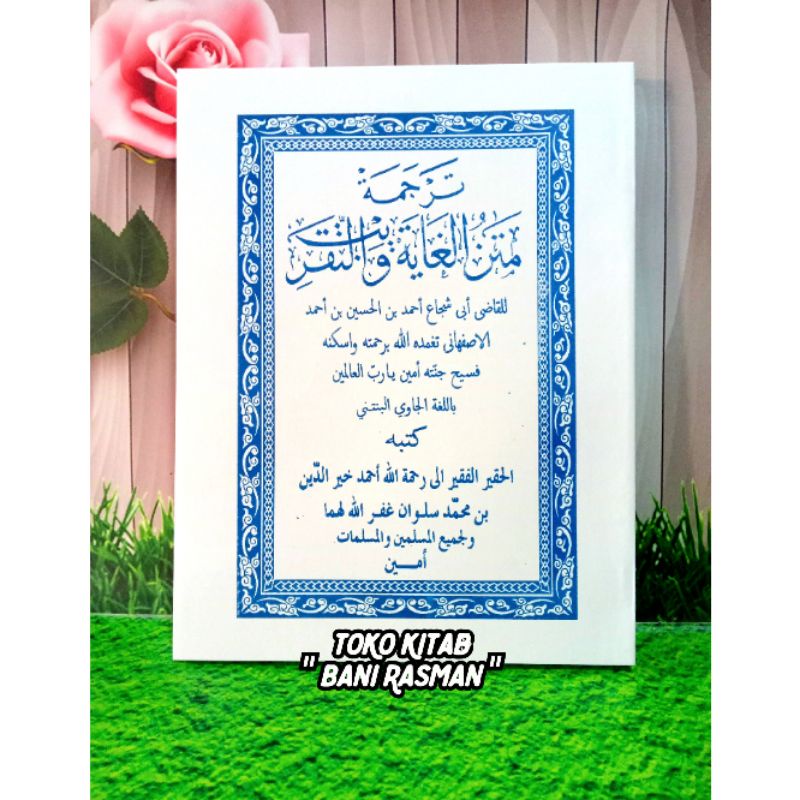 ترجمة
متن الغاية والتقريب
للقاضى أبى شجاع أحمد بن الحسين بن أحمد
الاصفهانى تغمده الله برحمته واسكنه
فسيح جنّته أمين يا ربّ العالمين
باللغة الجاوي البنتني
كتبه
الحقير الفقير الى رحمة الله أحمد خير الدّين
بن محمّد سلوان غفر الله لهما
ولجميع المسلمين والمسلمات
أمـــين
TOKO KITAB
" BANI RASMAN "